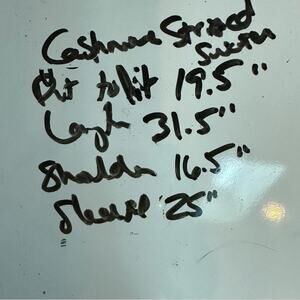 Cashmere Striped
Sweater
Pit to Pit 19.5"
Length 31.5"
Shoulder 16.5"
Sleeve 25"